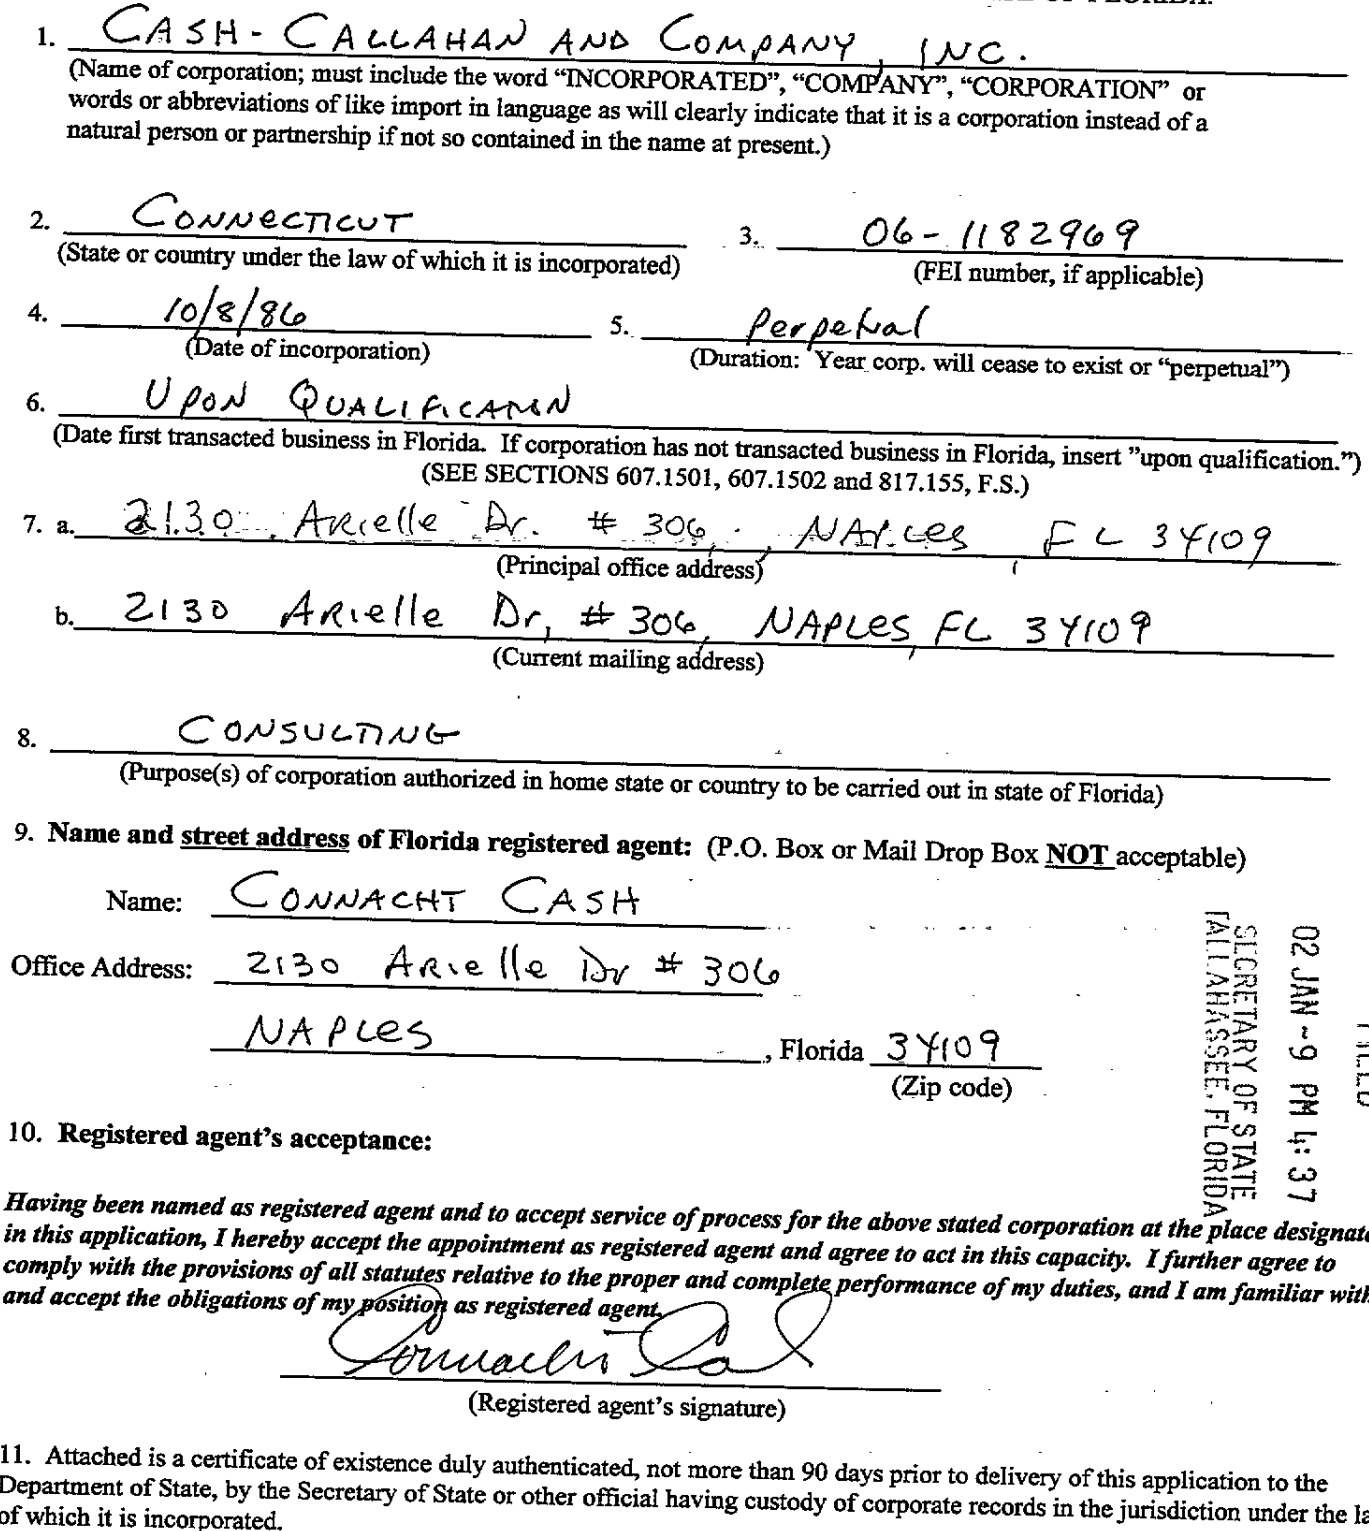 1. CASH-CALLAHAN AND COMPANY, INC.
(Name of corporation; must include the word “INCORPORATED”, “COMPANY”, “CORPORATION” or
words or abbreviations of like import in language as will clearly indicate that it is a corporation instead of a
natural person or partnership if not so contained in the name at present.)
2. CONNECTICUT 3. 06-1182969
(State or country under the law of which it is incorporated) (FEI number, if applicable)
4. 10/8/86 5. Perpetual
(Date of incorporation) (Duration: Year corp. will cease to exist or “perpetual”)
6. UPON QUALIFICATION
(Date first transacted business in Florida. If corporation has not transacted business in Florida, insert ”upon qualification.”)
(SEE SECTIONS 607.1501, 607.1502 and 817.155, F.S.)
7. a. 2130 Arielle Dr. # 306, NAPLES, FL 34109
(Principal office address)
b. 2130 Arielle Dr, # 306, NAPLES, FL 34109
(Current mailing address)
8. CONSULTING
(Purpose(s) of corporation authorized in home state or country to be carried out in state of Florida)
9. Name and street address of Florida registered agent: (P.O. Box or Mail Drop Box NOT acceptable)
Name: CONNACHT CASH
Office Address: 2130 Arielle Dr # 306
NAPLES, Florida 34109
(Zip code)
FILED
02 JAN -9 PM 4:37
SECRETARY OF STATE
TALLAHASSEE, FLORIDA
10. Registered agent's acceptance:
Having been named as registered agent and to accept service of process for the above stated corporation at the place designate
in this application, I hereby accept the appointment as registered agent and agree to act in this capacity. I further agree to
comply with the provisions of all statutes relative to the proper and complete performance of my duties, and I am familiar with
and accept the obligations of my position as registered agent.
Connacht Cash
(Registered agent's signature)
11. Attached is a certificate of existence duly authenticated, not more than 90 days prior to delivery of this application to the
Department of State, by the Secretary of State or other official having custody of corporate records in the jurisdiction under the la
of which it is incorporated.